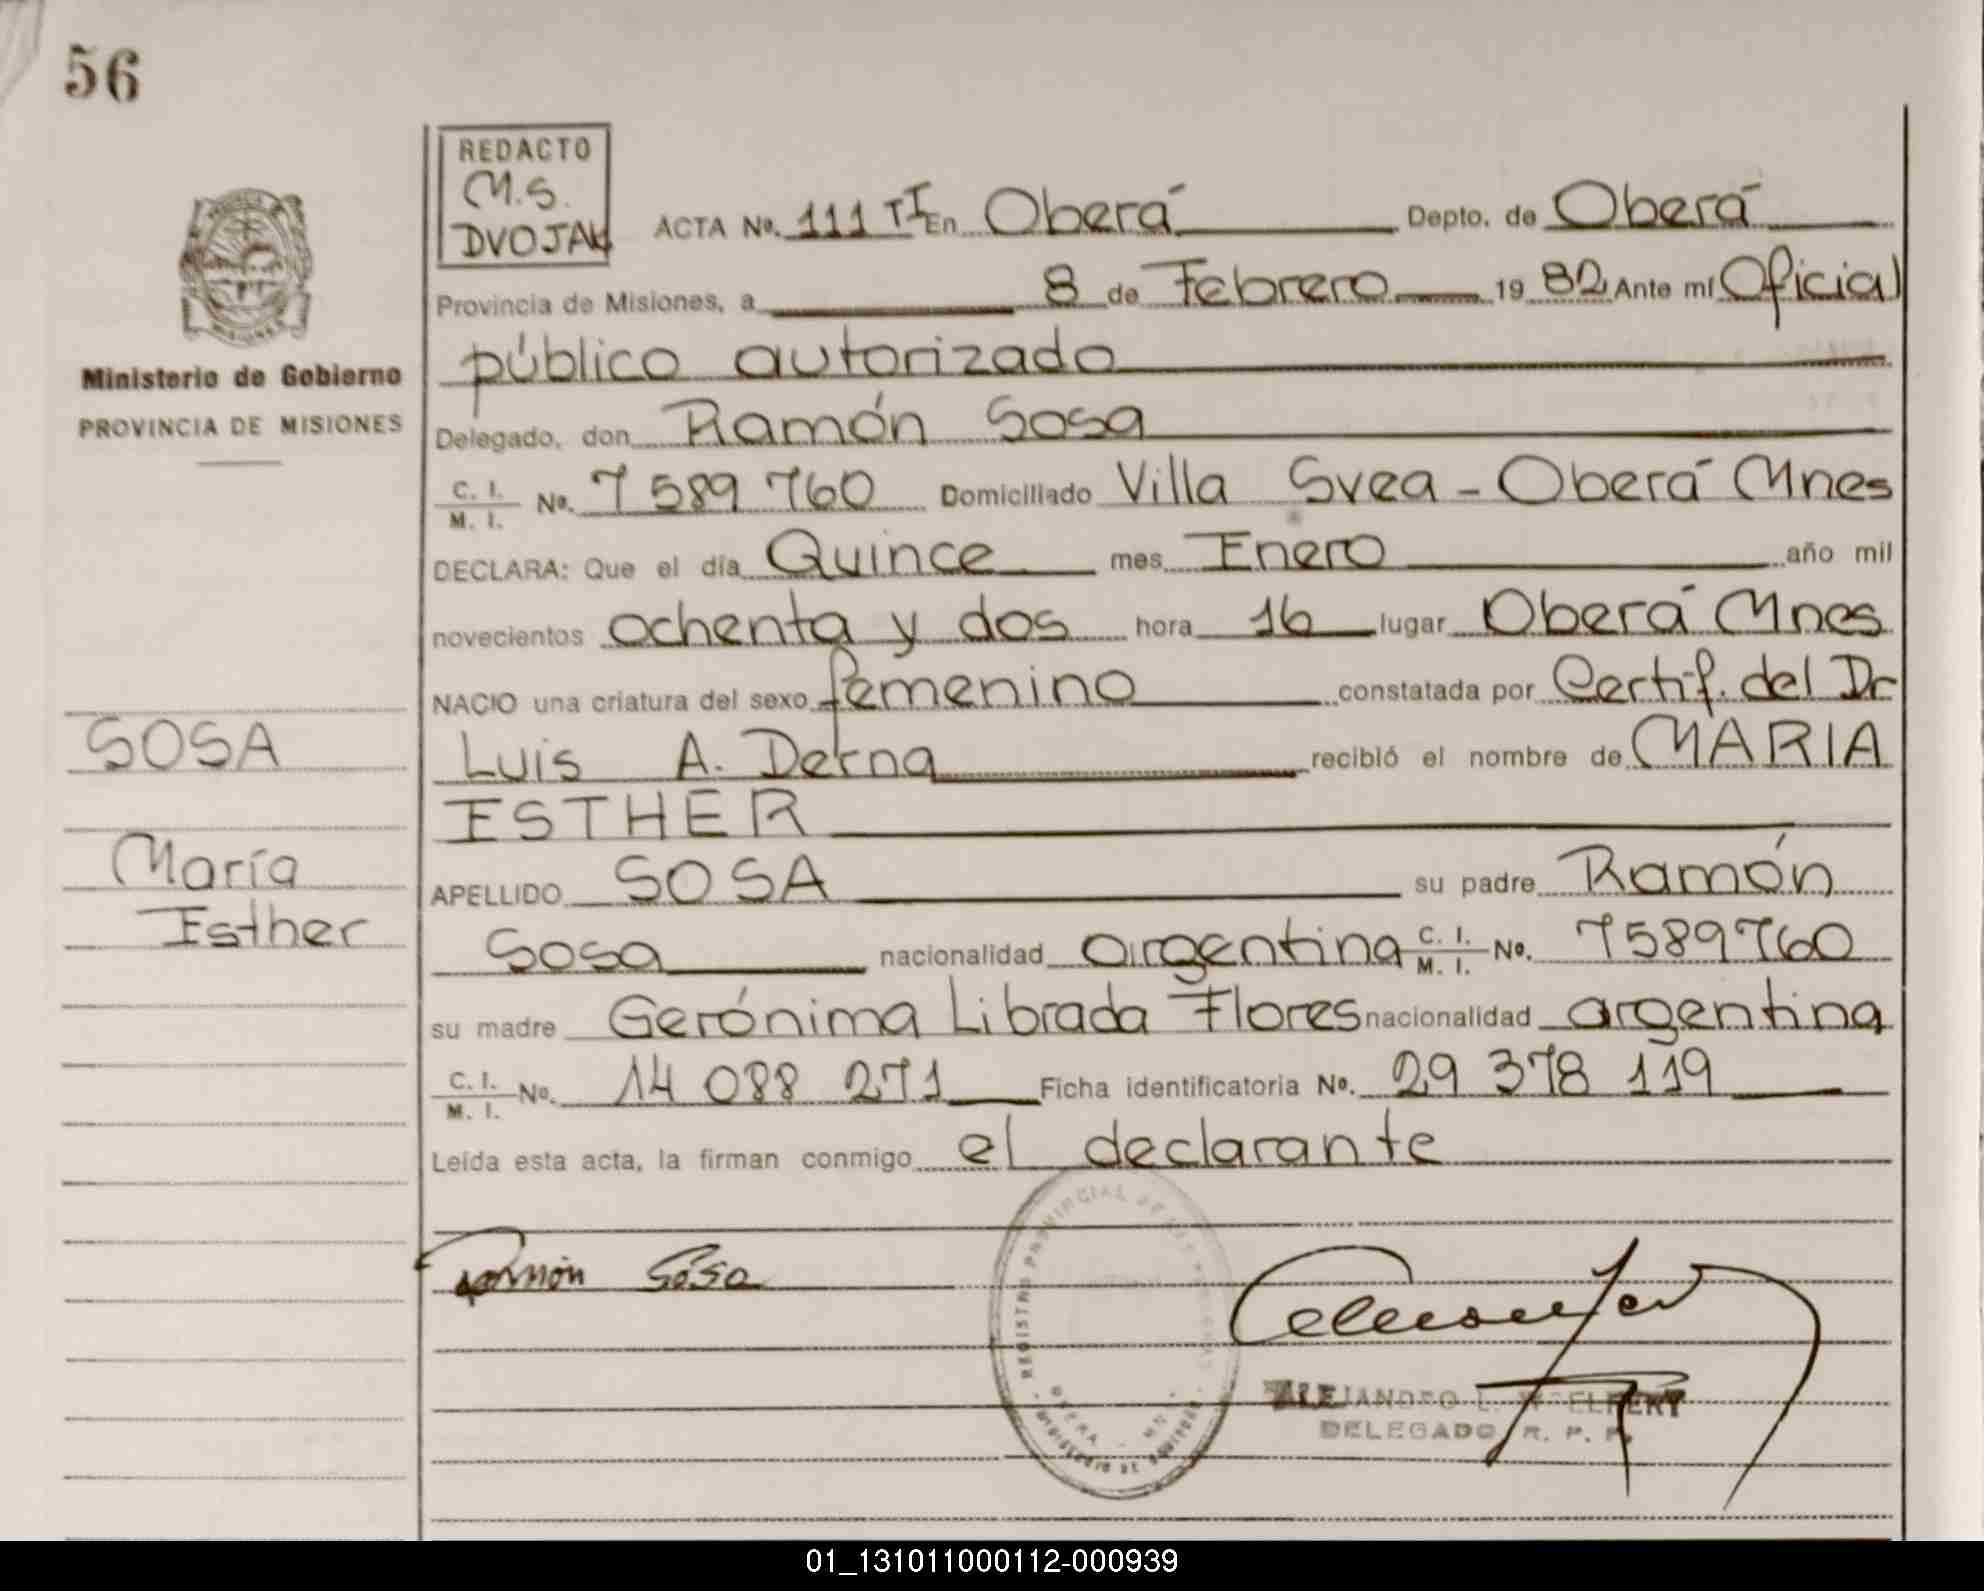 56
REDACTO
M.S.
DVOJAK
ACTA No. 111 TI En Oberá Depto. de Oberá
Provincia de Misiones, a 8 de Febrero 1982 Ante mí Oficial
público autorizado
Delegado, don Ramón Sosa
C. I. M. I. No. 7589760 Domiciliado Villa Svea - Oberá Mnes
DECLARA: Que el día Quince mes Enero año mil
novecientos ochenta y dos hora 16 lugar Oberá Mnes
NACIO una criatura del sexo femenino constatada por Certif. del Dr
Luis A. Derna recibió el nombre de MARIA
ESTHER
APELLIDO SOSA su padre Ramón
Sosa nacionalidad argentina C. I. M. I. No. 7589760
su madre Gerónima Librada Flores nacionalidad argentina
C. I. M. I. No. 14 088 271 Ficha identificatoria No. 29 378 119
Leída esta acta, la firman conmigo el declarante
Ministerio de Gobierno
PROVINCIA DE MISIONES
SOSA
María
Esther
Ramón Sosa
REGISTRO PROVINCIAL DE
ALEJANDRO L.
DELEGADO R. P. P.
01_131011000112-000939